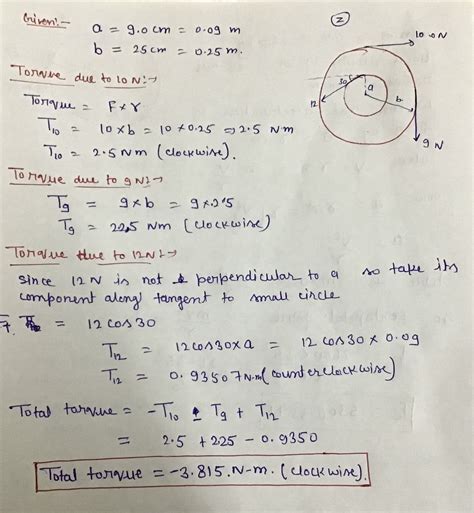 Given:-
a = 9.0 cm = 0.09 m
b = 25 cm = 0.25 m.
②
10.0N
30
a
b
12
9 N
Torque due to 10N:→
Torque = F×r
T10 = 10×b = 10×0.25 ⇒ 2.5 N·m
T10 = 2.5 N m (clockwise).
Torque due to 9N:→
T9 = 9×b = 9×2.5
T9 = 22.5 Nm (clockwise)
Torque due to 12N:→
since 12 N is not perpendicular to a so take its
component along tangent to small circle
= 12 cos 30
T12 = 12 cos 30 × a = 12 cos 30 × 0.09
T12 = 0.93507 N·m (counterclockwise)
Total torque = -T10 ± T9 + T12
= 2.5 + 225 - 0.9350
Total torque = -3.815. N-m. (clockwise).